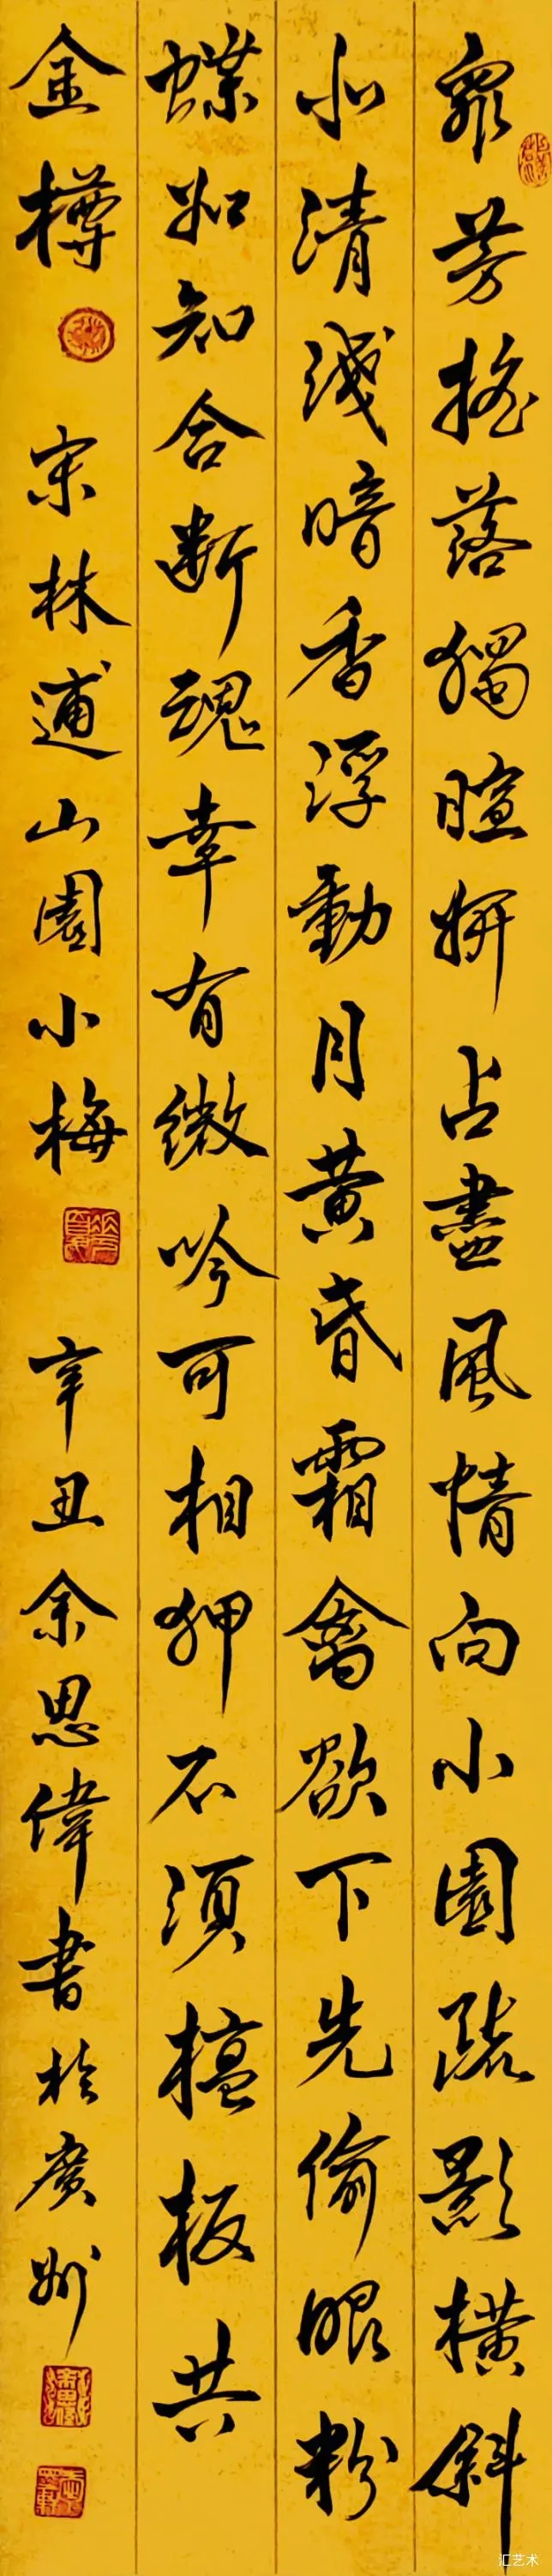 眾芳搖落獨暄妍占盡風情向小園疏影橫斜
水清淺暗香浮動月黃昏霜禽欲下先偷眼粉
蝶如知合斷魂幸有微吟可相狎不須檀板共
金樽
宋林逋山園小梅
辛丑余思偉書於廣州
汇艺术